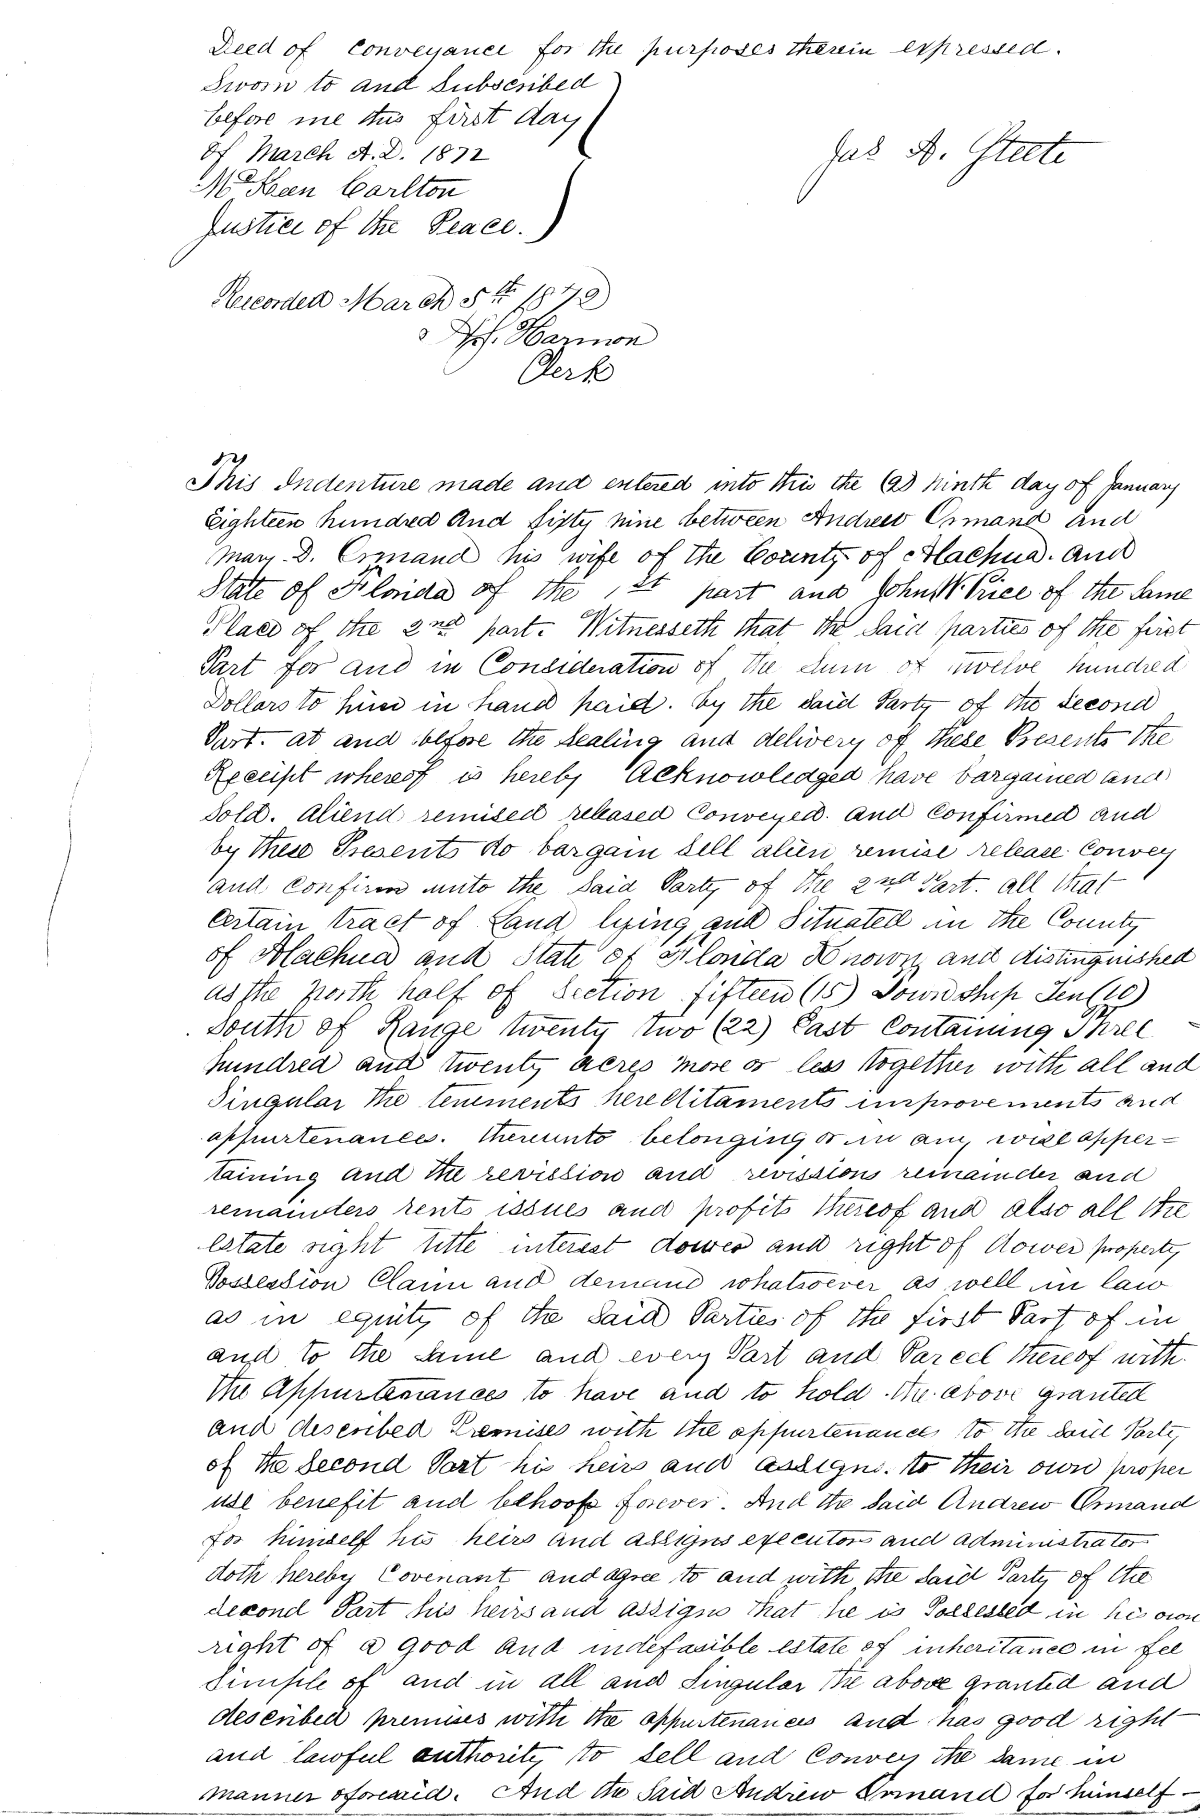 Deed of conveyance for the purposes therein expressed.
Sworn to and Subscribed
before me this first day
of March A.D. 1872
McKeen Carlton
Justice of the Peace.
Jas A. Steele
Recorded March 5th 1872
Harmon
Clerk
This Indenture made and entered into this the (9) ninth day of January
Eighteen hundred and Sixty nine between Andrew Ormand and
Mary D. Ormand his wife of the County of Alachua. and
State of Florida of the 1st part and John W. Price of the Same
Place of the 2nd part. Witnesseth that the Said parties of the first
Part for and in Consideration of the Sum of twelve hundred
Dollars to him in hand paid. by the said Party of the Second
Part. at and before the Sealing and delivery of these Presents the
Receipt whereof is hereby Acknowledged have bargained and
Sold. aliend remised released Conveyed. and Confirmed and
by these Presents do bargain Sell alien remise release Convey
and Confirm unto the Said Party of the 2nd Part. all that
Certain tract of Land lying and Situated in the County
of Alachua and State of Florida Known and distinguished
as the north half of Section fifteen (15) Township Ten (10)
South of Range twenty two (22) East Containing Three
hundred and twenty acres more or less together with all and
Singular the tenements hereditaments improvements and
appurtenances. thereunto belonging or in any wise apper=
taining and the revission and revissions remainder and
remainders rents issues and profits thereof and also all the
estate right title interest dower and right of dower property
Possession Claim and demand whatsoever as well in law
as in equity of the Said Parties of the first Part of in
and to the Same and every Part and Parcel thereof with
the Appurtenances to have and to hold the above granted
and described Premises with the appurtenances to the said Party
of the Second Part his heirs and assigns. to their own proper
use benefit and behoof forever. And the Said Andrew Ormand
for himself his heirs and assigns executors and administrator
doth hereby Covenant and agree to and with the Said Party of the
Second Part his heirs and assigns that he is Possessed in his own
right of a good and indefasible estate of inheritance in fee
Simple of and in all and Singular the above granted and
described premises with the appurtenances and has good right
and lawful authority to sell and Convey the Same in
manner aforesaid. And the Said Andrew Ormand for himself